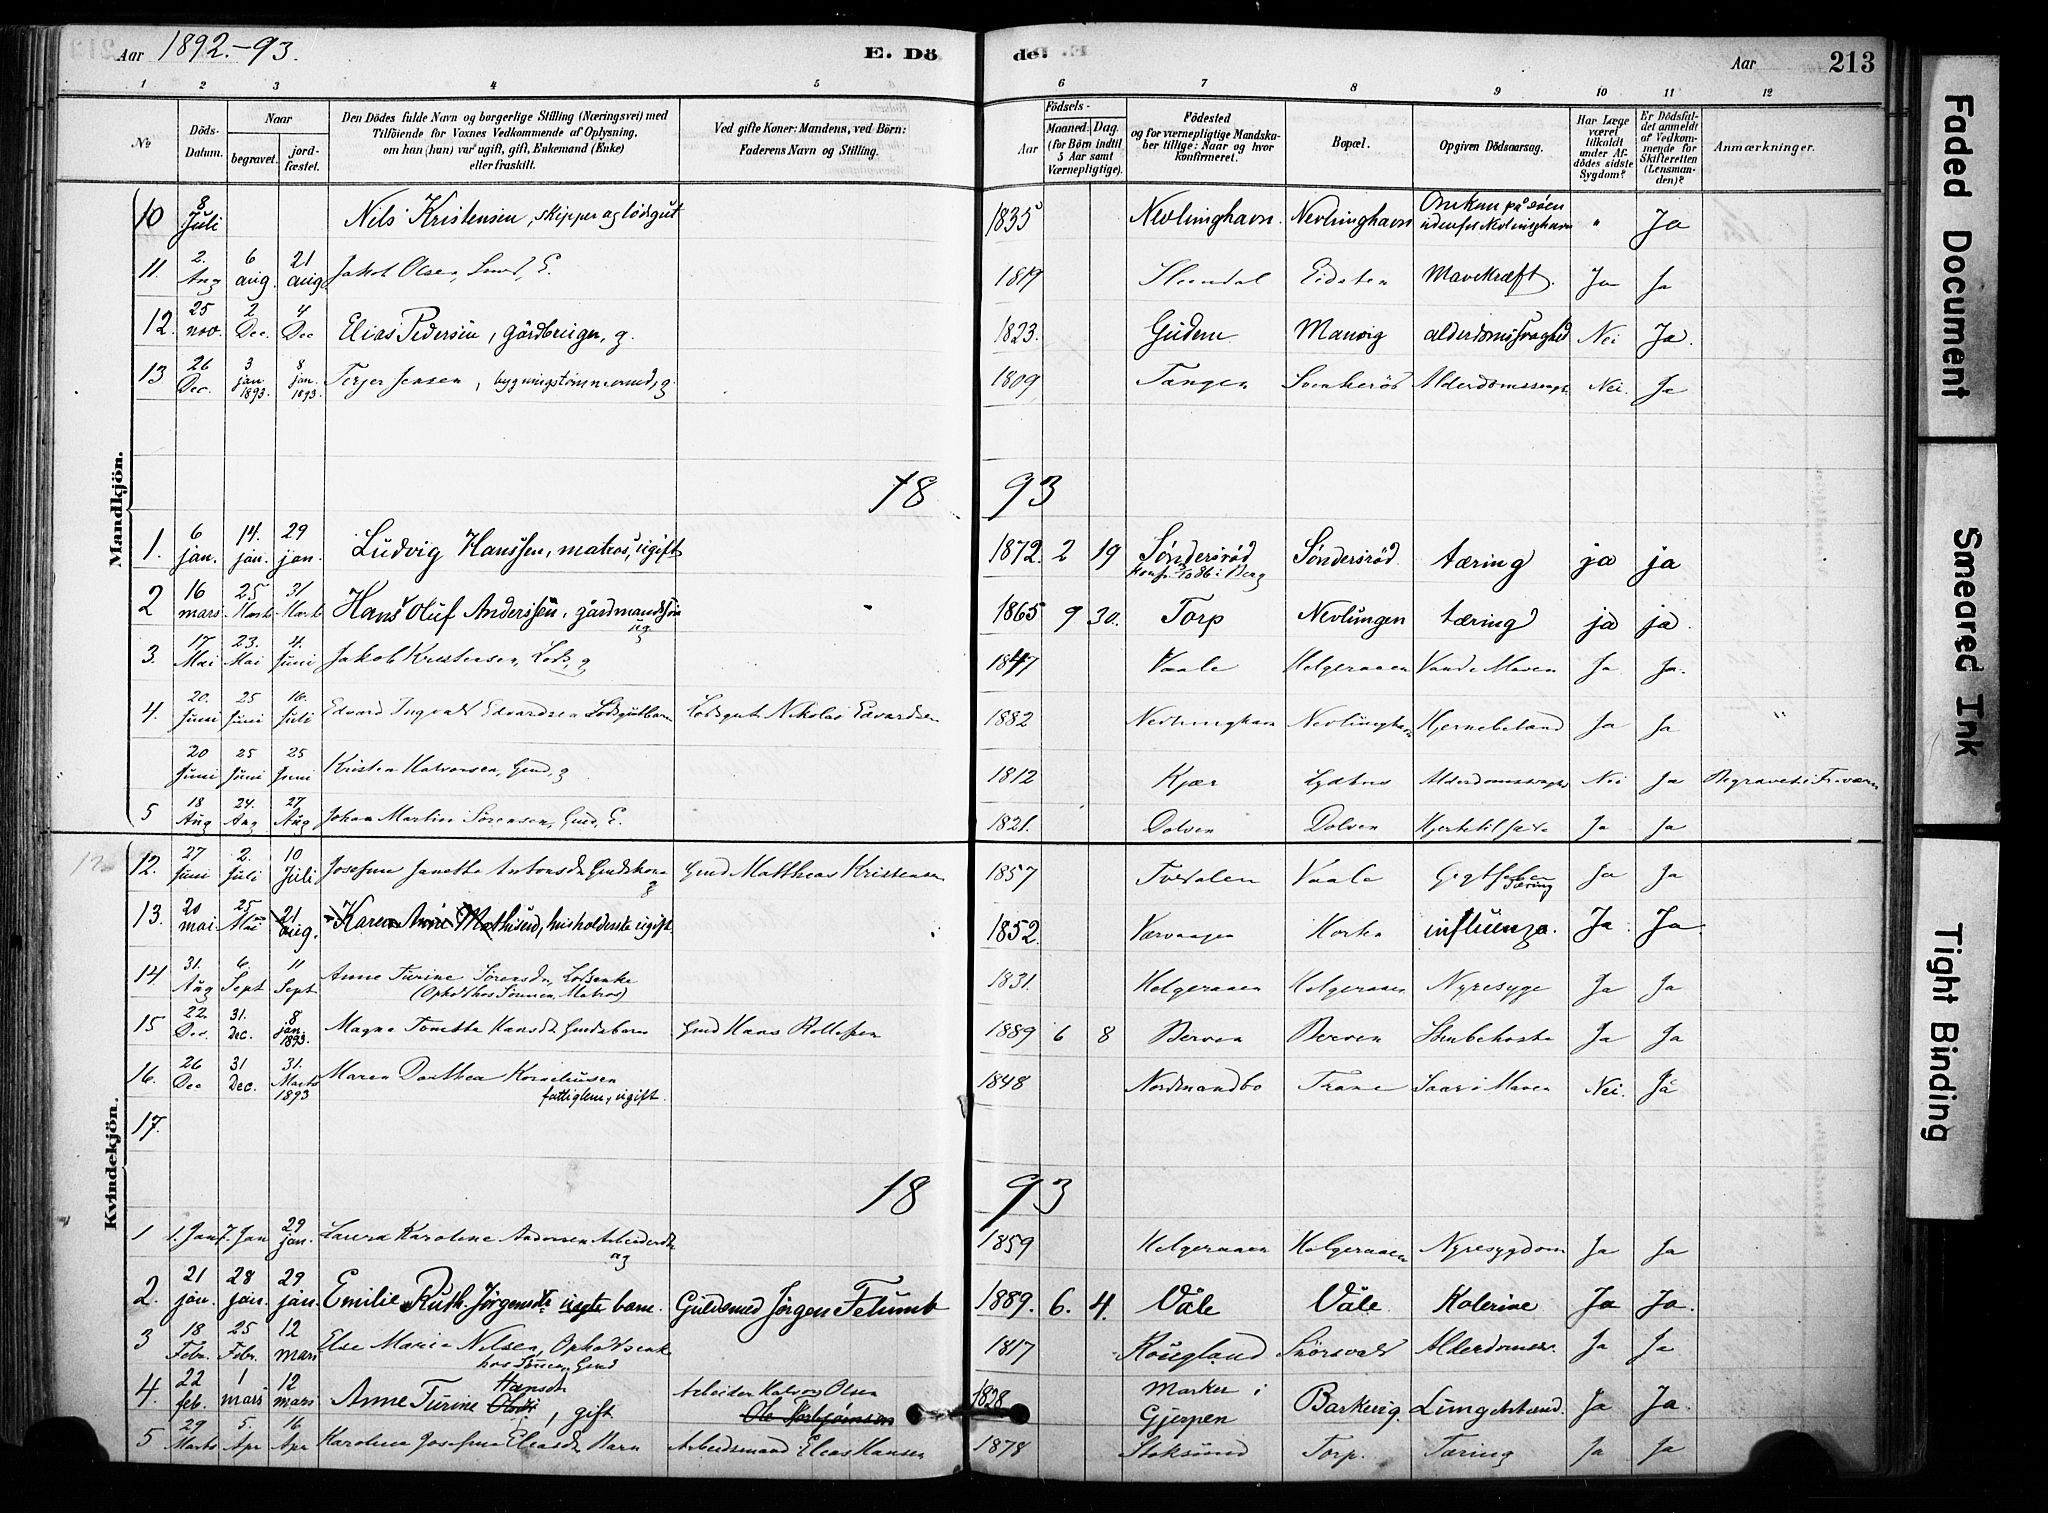 Aar 1892.-93. E. Dö de. Aar 213
1 2 3 4 5 6 7 8 9 10 11 12
No Döds-Datum. Naar begravet. jordfæstet. Den Dödes fulde Navn og borgerlige Stilling (Næringsvei) med Tilföiende for Voxnes Vedkommende af Oplysning, om han (hun) var ugift, gift, Enkemand (Enke) eller fraskilt. Ved gifte Koner: Mandens, ved Börn: Faderens Navn og Stilling. Födsels- Aar Maaned. Dag. (for Börn indtil 5 Aar samt Værnepligtige). Födested og for værnepligtige Mandskaber tillige: Naar og hvor konfirmeret. Bopæl. Opgiven Dödsaarsag. Har Læge været tilkaldt under Afdödes sidste Sygdom? Er Dödsfaldet anmeldt af Vedkommende for Skifteretten (Lensmanden)? Anmærkninger.
Mandkjön.
10 8 Juli Nils Kristensen, skipper og lodsgut 1835 Nevlinghavn. Nevlinghavn Omkom på søen udenfor Nevlinghavn " Ja
11. 2. Aug 6 aug. 21 aug Jakob Olsen, E. 1819 Eidsten Mavekræft. Ja Ja
12. 25 nov. 2 Dec. 4 Dec Elias Pedersen, gårdbruger, g. 1823. Gudem Manvig alderdomssvaghed Nei Ja.
13 26 Dec. 3 jan. 1893. 8 jan. 1893. Terjer Jensen, bygningstømmermd, g. 1809 Tangen Alderdomssvagh Nei. Ja
18 93
1. 6 jan. 14. jan. 29 jan. Ludvig Hanssen, matros, ugift 1872. 2 19 Søndersrød konf. 3/10 86 i Berg Søndersrød. tæring ja ja
2 16 mars 25 Marts 31 Marts Hans Oluf Anderssen, gårdmandssøn ug 1865 9 30. Torp Nevlungen tæring ja ja.
3. 17 Mai 23. Mai 4. Juni Jakob Kristensen, Lods, g 1847 Vaale Helgeraaen Vand i Maven Ja Ja.
4. 20. Juni 25 Juni 16. Juli Edvard Ingvald Edvardsen Lodsgutbarn Lodsgut Nikolai Edvardsen 1882 Nevlinghavn Nevlinghavn Hjernebetænd Ja Ja "
20 Juni 25 Juni 25 Juni Kristen Halvorsen, Gmd, g 1812 Kjær Alderdomssvagh Nei Ja Begravet i
5 18 Aug 24. Aug 27 Aug Johan Martin Sørensen, Gmd, E. 1821. Dolven Dolven Ja Ja
Kvindekjön.
12. 27 Juni 2. Juli 10 Juli Josefine Janette Antonsdt Gmdskone g Gmd Matthias Kristensen 1857 Tvedalen Vaale Gigtfeber Tæring Ja Ja
13. 20 mai 25 Mai 21 aug. Karen Mathisen, husholderske ugift 1852. influenza. Ja. Ja
14 31. Aug 6. Sept 11 Sept Anne Turine Sørensdt, Lodsenke (Ophold hos Sønnen, Matros) 1831. Helgeraaen Helgeraaen Nyresyge Ja Ja
15 22. Dec. 31. Dec. 8 jan. 1893. Magna Tomette Hansdt Gmdsbarn Gmd Hans Rollefsen 1889 6 8 Berven Berven Strubehoste Ja Ja
16. 26 Dec 31 Dec. 31. Marts 1893 Maren Dorthea Korneliusen fattiglem, ugift. 1848 Nordmandbo Trane Saar i Maven Nei. Ja
17.
18 93
1 1. Jan 7. Jan 29 jan. Laura Karoline Andersen Arbeiderdt ug 1859 Helgeraaen Helgeraaen Nyresygdom Ja Ja
2. 21 jan. 28 jan. 29 jan. Emilie Ruth Jørgensdt uægte barn. Guldsmed Jørgen Felumb 1889. 6. 4. Våle Våle Kolerine Ja Ja.
3 18 Febr. 25 Febr. 12 mars Else Maria Nilsen, Opholdsenke hos Sønnen, Gmd 1817 Rougland Alderdomssv. Ja Ja
4. 22 feb. 1 mars 12 mars Anne Turine Hansdt, gift Arbeider Halvor Olsen Ole Torbjørnsen 1828 Marker i Gjerpen Barkevig. Lungebetænd. Ja Ja.
5 29 Marts 5. Apr 16 Apr Karoline Josefine Eliasdt Barn Arbeidsmand Elias Hansen 1878 Stoksund Torp. Tæring Ja Ja
Faded Document
Smeared Ink
Tight Binding